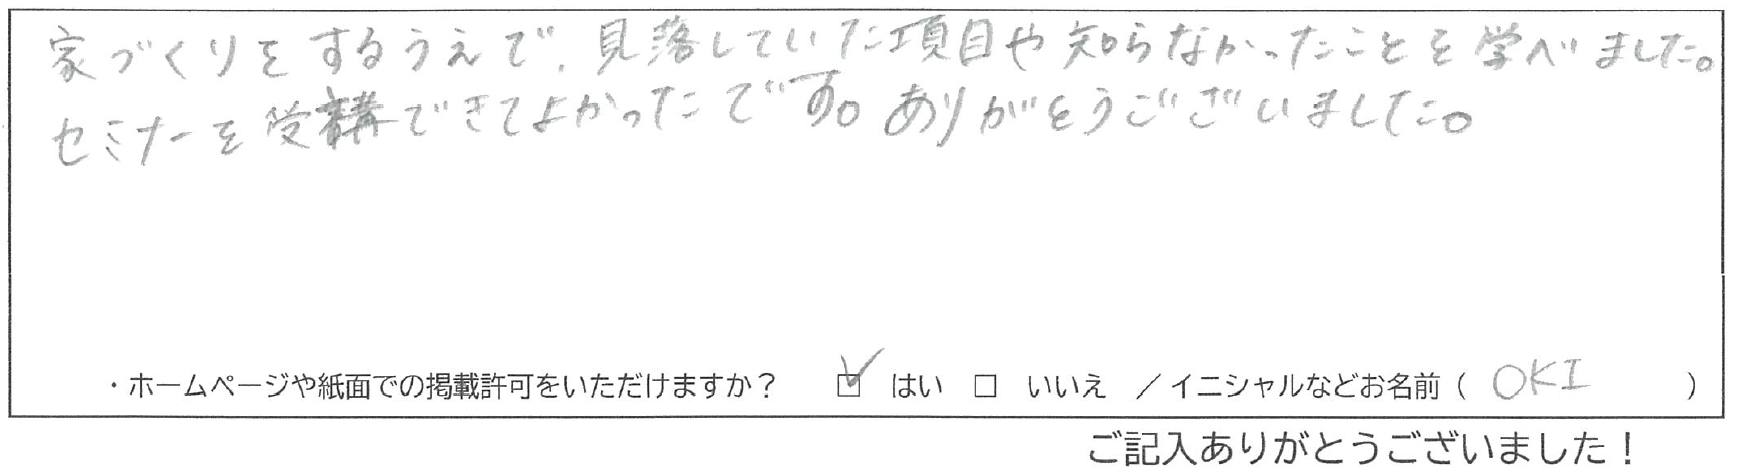 家づくりをするうえで、見落していた項目や知らなかったことを学べました。
セミナーを受講できてよかったです。ありがとうございました。
・ホームページや紙面での掲載許可をいただけますか？ ☑ はい □ いいえ ／イニシャルなどお名前（ OKI ）
ご記入ありがとうございました！